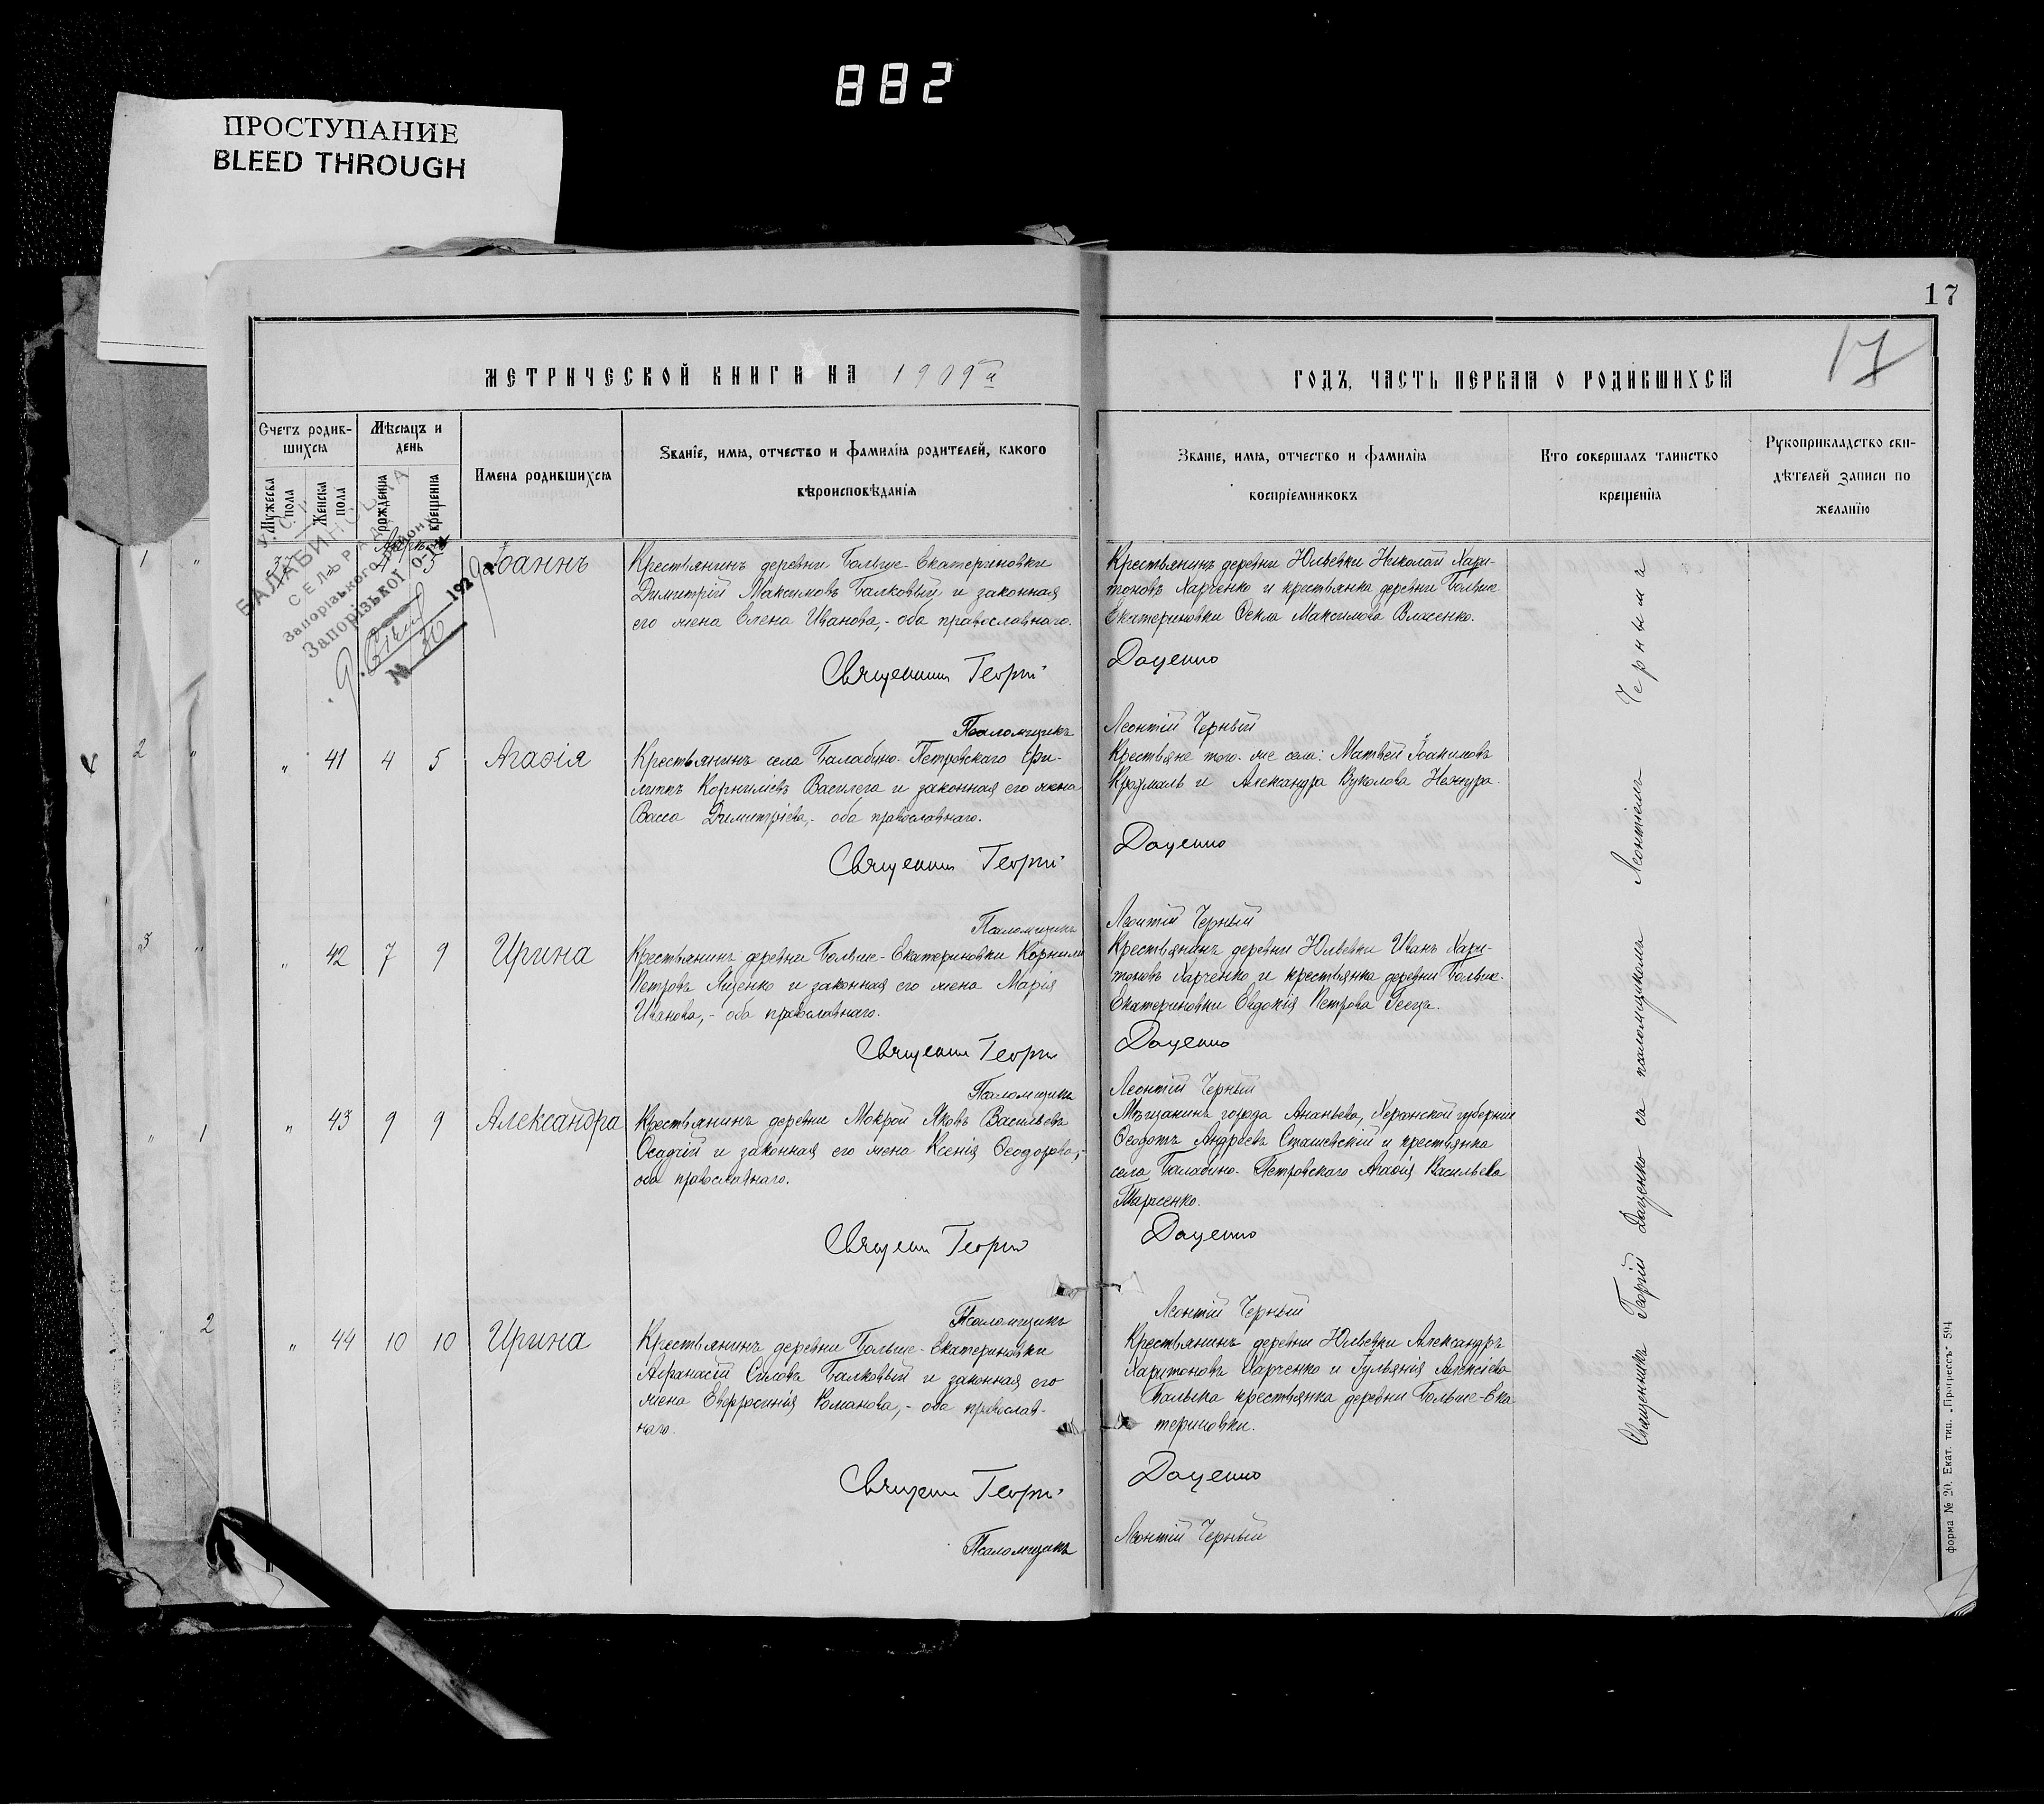 882
ПРОСТУПАНИЕ
BLEED THROUGH
17
17
МЕТРИЧЕСКОЙ КНИГИ НА 1909й
ГОДЪ, ЧАСТЬ ПЕРВАЯ О РОДИВШИХСЯ
Счетъ родив-
шихся
Мужеска пола
Женска пола
Мѣсяцъ и
день
рожденія
крещенія
Имена родившихся
Званіе, имя, отчество и фамилія родителей, какого
вѣроисповѣданія
Званіе, имя, отчество и фамилія
воспріемниковъ
Кто совершалъ таинство
крещенія
Рукоприкладство сви-
дѣтелей записи по
желанію
У.С.
БАЛАБИНСЬКА
СЕЛЬРАДА
Запорізького району
Запорізької окр.
1929
№ 30
5
Іоаннъ
Крестьянинъ деревни Больше-Екатериновки
Димитрій Максимовъ Балковый и законная
его жена Елена Иванова,- оба православнаго.
Священникъ Георгій
Псаломщикъ
Крестьянинъ деревни Юльевки Николай Хари-
тоновъ Харченко и крестьянка деревни Больше
Екатериновки Ѳекла Максимова Власенко.
Даценко
Леонтій Черный
" 41 4 5 Агаѳія
Крестьянинъ села Балабино-Петровскаго Фи-
липпъ Корниліевъ Василега и законная его жена
Васса Димитріева,- оба православнаго.
Священникъ Георгій
Псаломщикъ
Крестьяне того-же села: Матвей Іоакимовъ
Крохмаль и Александра Вуколова Нехнура.
Даценко
Леонтій Черный
" 42 7 9 Ирина
Крестьянинъ деревни Больше-Екатериновки Корнилій
Петровъ Яценко и законная его жена Марія
Иванова,- оба православнаго.
Священникъ Георгій
Псаломщикъ
Крестьянинъ деревни Юльевки Иванъ Хари-
тоновъ Харченко и крестьянка деревни Больше-
Екатериновки Евдокія Петрова Геега.
Даценко
Леонтій Черный
" 43 9 9 Александра
Крестьянинъ деревни Мокрой Яковъ Васильевъ
Осадчій и законная его жена Ксенія Ѳеодорова,-
оба православнаго.
Священникъ Георгій
Псаломщикъ
Мѣщанинъ города Ананьева, Херсонской губерніи
Ѳеодотъ Андреевъ Сташевскій и крестьянка
села Балабино-Петровскаго Агаѳія Васильева
Тарасенко.
Даценко
Леонтій Черный
" 44 10 10 Ирина
Крестьянинъ деревни Больше-Екатериновки
Аѳанасій Силовъ Балковый и законная его
жена Евфросинія Романова,- оба православ-
наго.
Священникъ Георгій
Псаломщикъ
Крестьянинъ деревни Юльевки Александръ
Харитоновъ Харченко и Гульянія Алексіева
крестьянка деревни Больше-Ека
териновки.
Даценко
Леонтій Черный
Священникъ Георгій Даценко съ псаломщикомъ Леонтіемъ Чернымъ
форма № 20. Екат. тип. „Прогрессъ" 594
1 "
2 "
3 "
" 1
" 2